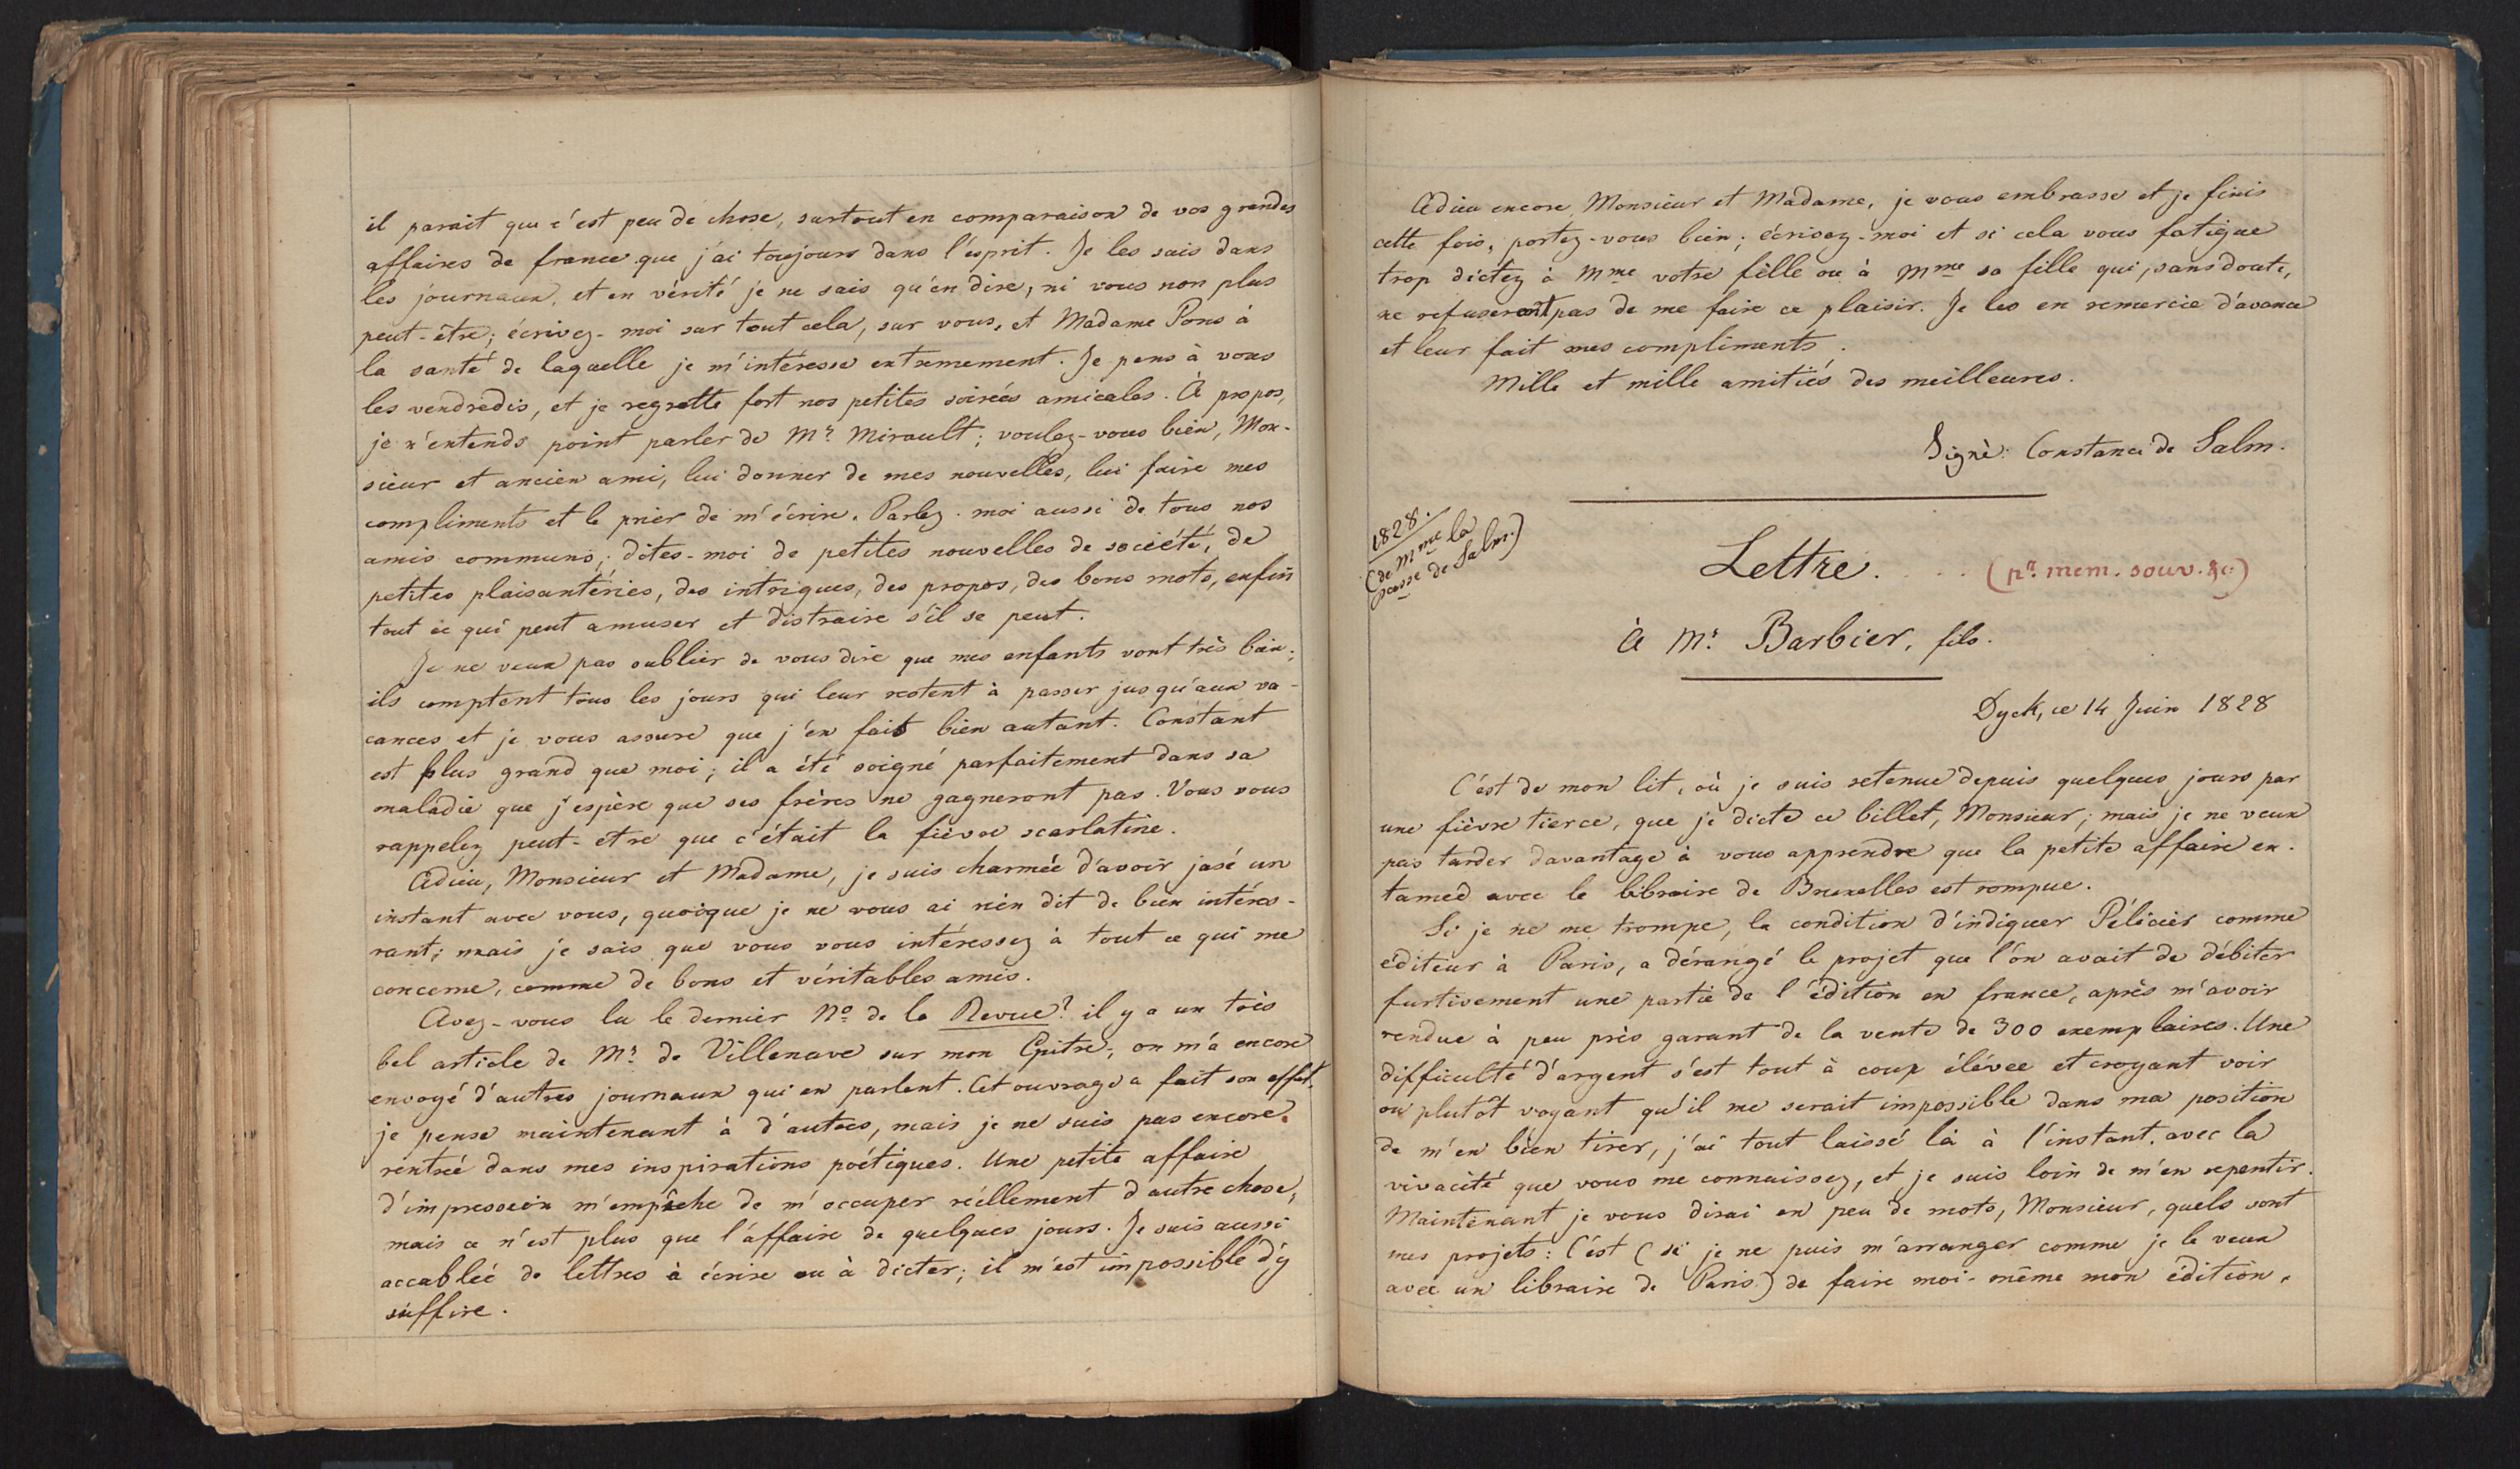 il parait que c'est peu de chose, surtout en comparaison de vos grandes
affaires de france que j'ai toujours dans l'esprit. Je les suis dans
les journaux, et en vérité je ne sais qu'en dire, ni vous non plus
peut-être; écrivez-moi sur tout cela, sur vous, et Madame Pons à
la santé de laquelle je m'intéresse extremement. Je pens à vous
les vendredis, et je regrette fort nos petites soirées amicales. À propos,
je n'entends point parler de Mr. Mirault; voulez-vous bien, Mon-
sieur et ancien ami, lui donner de mes nouvelles, lui faire mes
compliments et le prier de m'écrire. Parlez-moi aussi de tous nos
amis communs; dites-moi de petites nouvelles de société, de
petites plaisantéries, des intrigues, des propos, des bons mots, enfin
tout ce qui peut amuser et distraire s'il se peut.
Je ne veux pas oublier de vous dire que mes enfants vont très bien;
ils comptent tous les jours qui leur restent à passer jusqu'aux va-
cances et je vous assure que j'en fais bien autant. Constant
est plus grand que moi; il a été soigné parfaitement dans sa
maladie que j'espère que ses frères ne gagneront pas. Vous vous
rappelez peut-etre que c'était la fièvre scarlatine.
Adieu, Monsieur et Madame, je suis charmée d'avoir jasé un
instant avec vous, quoique je ne vous ai rien dit de bien intéres-
sant; mais je sais que vous vous intéressez à tout ce qui me
concerne, comme de bons et véritables amis.
Avez-vous lu le dernier No de la Revue? il y a un très
bel article de Mr. de Villenave sur mon Epitre; on m'a encore
envoyé d'autres journaux qui en parlent. Cet ouvrage a fait son effet.
je pense maintenant à d'autres, mais je ne suis pas encore
rentrée dans mes inspirations poétiques. Une petite affaire
d'impression m'empêche de m'occuper réellement d'autre chose,
mais ce n'est plus que l'affaire de quelques jours. Je suis aussi
accablée de lettres à écrire ou à dicter; il m'est impossible d'y
suffire.
Adieu encore Monsieur et Madame, je vous embrasse et je finis
cette fois, portez-vous bien; écrivez-moi et si cela vous fatigue
trop dictez à Mme votre fille ou à Mme sa fille qui, sans doute,
ne refuseront pas de me faire ce plaisir. Je les en remercie d'avance
et leur fait mes compliments.
Mille et mille amitiés des meilleures.
Signé: Constance de Salm.
1828.
(de Mme la
pcesse de Salm.)
Lettre. . . (pr. mem. souv. &c)
à Mr. Barbier, fils.
Dyck, ce 14 Juin 1828
C'est de mon lit, où je suis retenue depuis quelques jours par
une fièvre tierce, que je dicte ce billet, Monsieur; mais je ne veux
pas tarder davantage à vous apprendre que la petite affaire en-
tamée avec le libraire de Bruxelles est rompue.
Si je ne me trompe, la condition d'indiquer Pélicier comme
éditeur à Paris, a dérangé le projet que l'on avait de débiter
furtivement une partie de l'édition en france, après m'avoir
rendue à peu près garant de la vente de 300 exemplaires. Une
difficulté d'argent s'est tout à coup élévée et croyant voir
ou plutôt voyant qu'il me serait impossible dans ma position
de m'en bien tirer, j'ai tout laissé là à l'instant, avec la
vivacité que vous me connaissez, et je suis loin de m'en repentir.
Maintenant je vous dirai en peu de mots, Monsieur, quels sont
mes projets: C'est (si je ne puis m'arranger comme je le veux
avec un libraire de Paris) de faire moi-même mon édition,